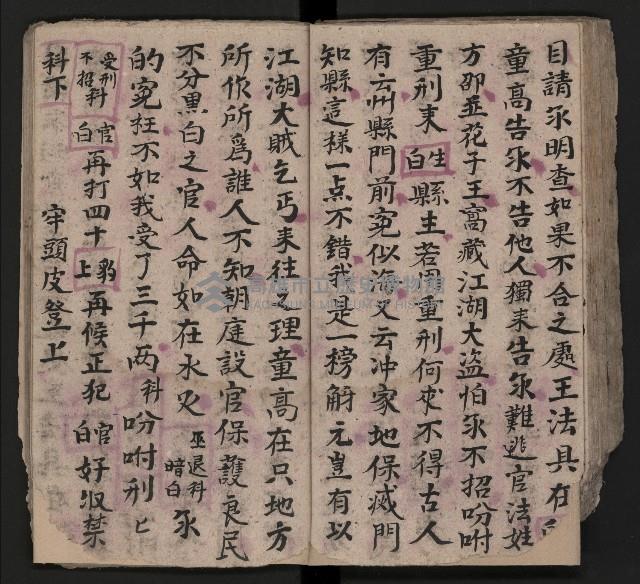 目請永明查如果不合之處王法具在
童高告永不告他人獨来告永難逃官法姓
方卲並花子王窩藏江湖大盜怕永不招吩咐
重刑来 生白 縣主若因重刑何求不得古人
有云州縣門前寃似海又云冲家地保滅門
知縣這様一点不錯我是一榜觧元豈有以
江湖大賊乞丐来往 理童高在只地方
所作所為誰人不知朝庭設官保護良民
不分黒白之官人命如在水火 巫退科 暗白 永
的寃枉不如我受了三千両 科 吩咐刑匕
受刑科 不招科 官白 再打四十 豹上 再候正犯 官白 好収禁
科下 牢頭皮登上
高雄市立歷史博物館
KAOHSIUNG MUSEUM OF HISTORY